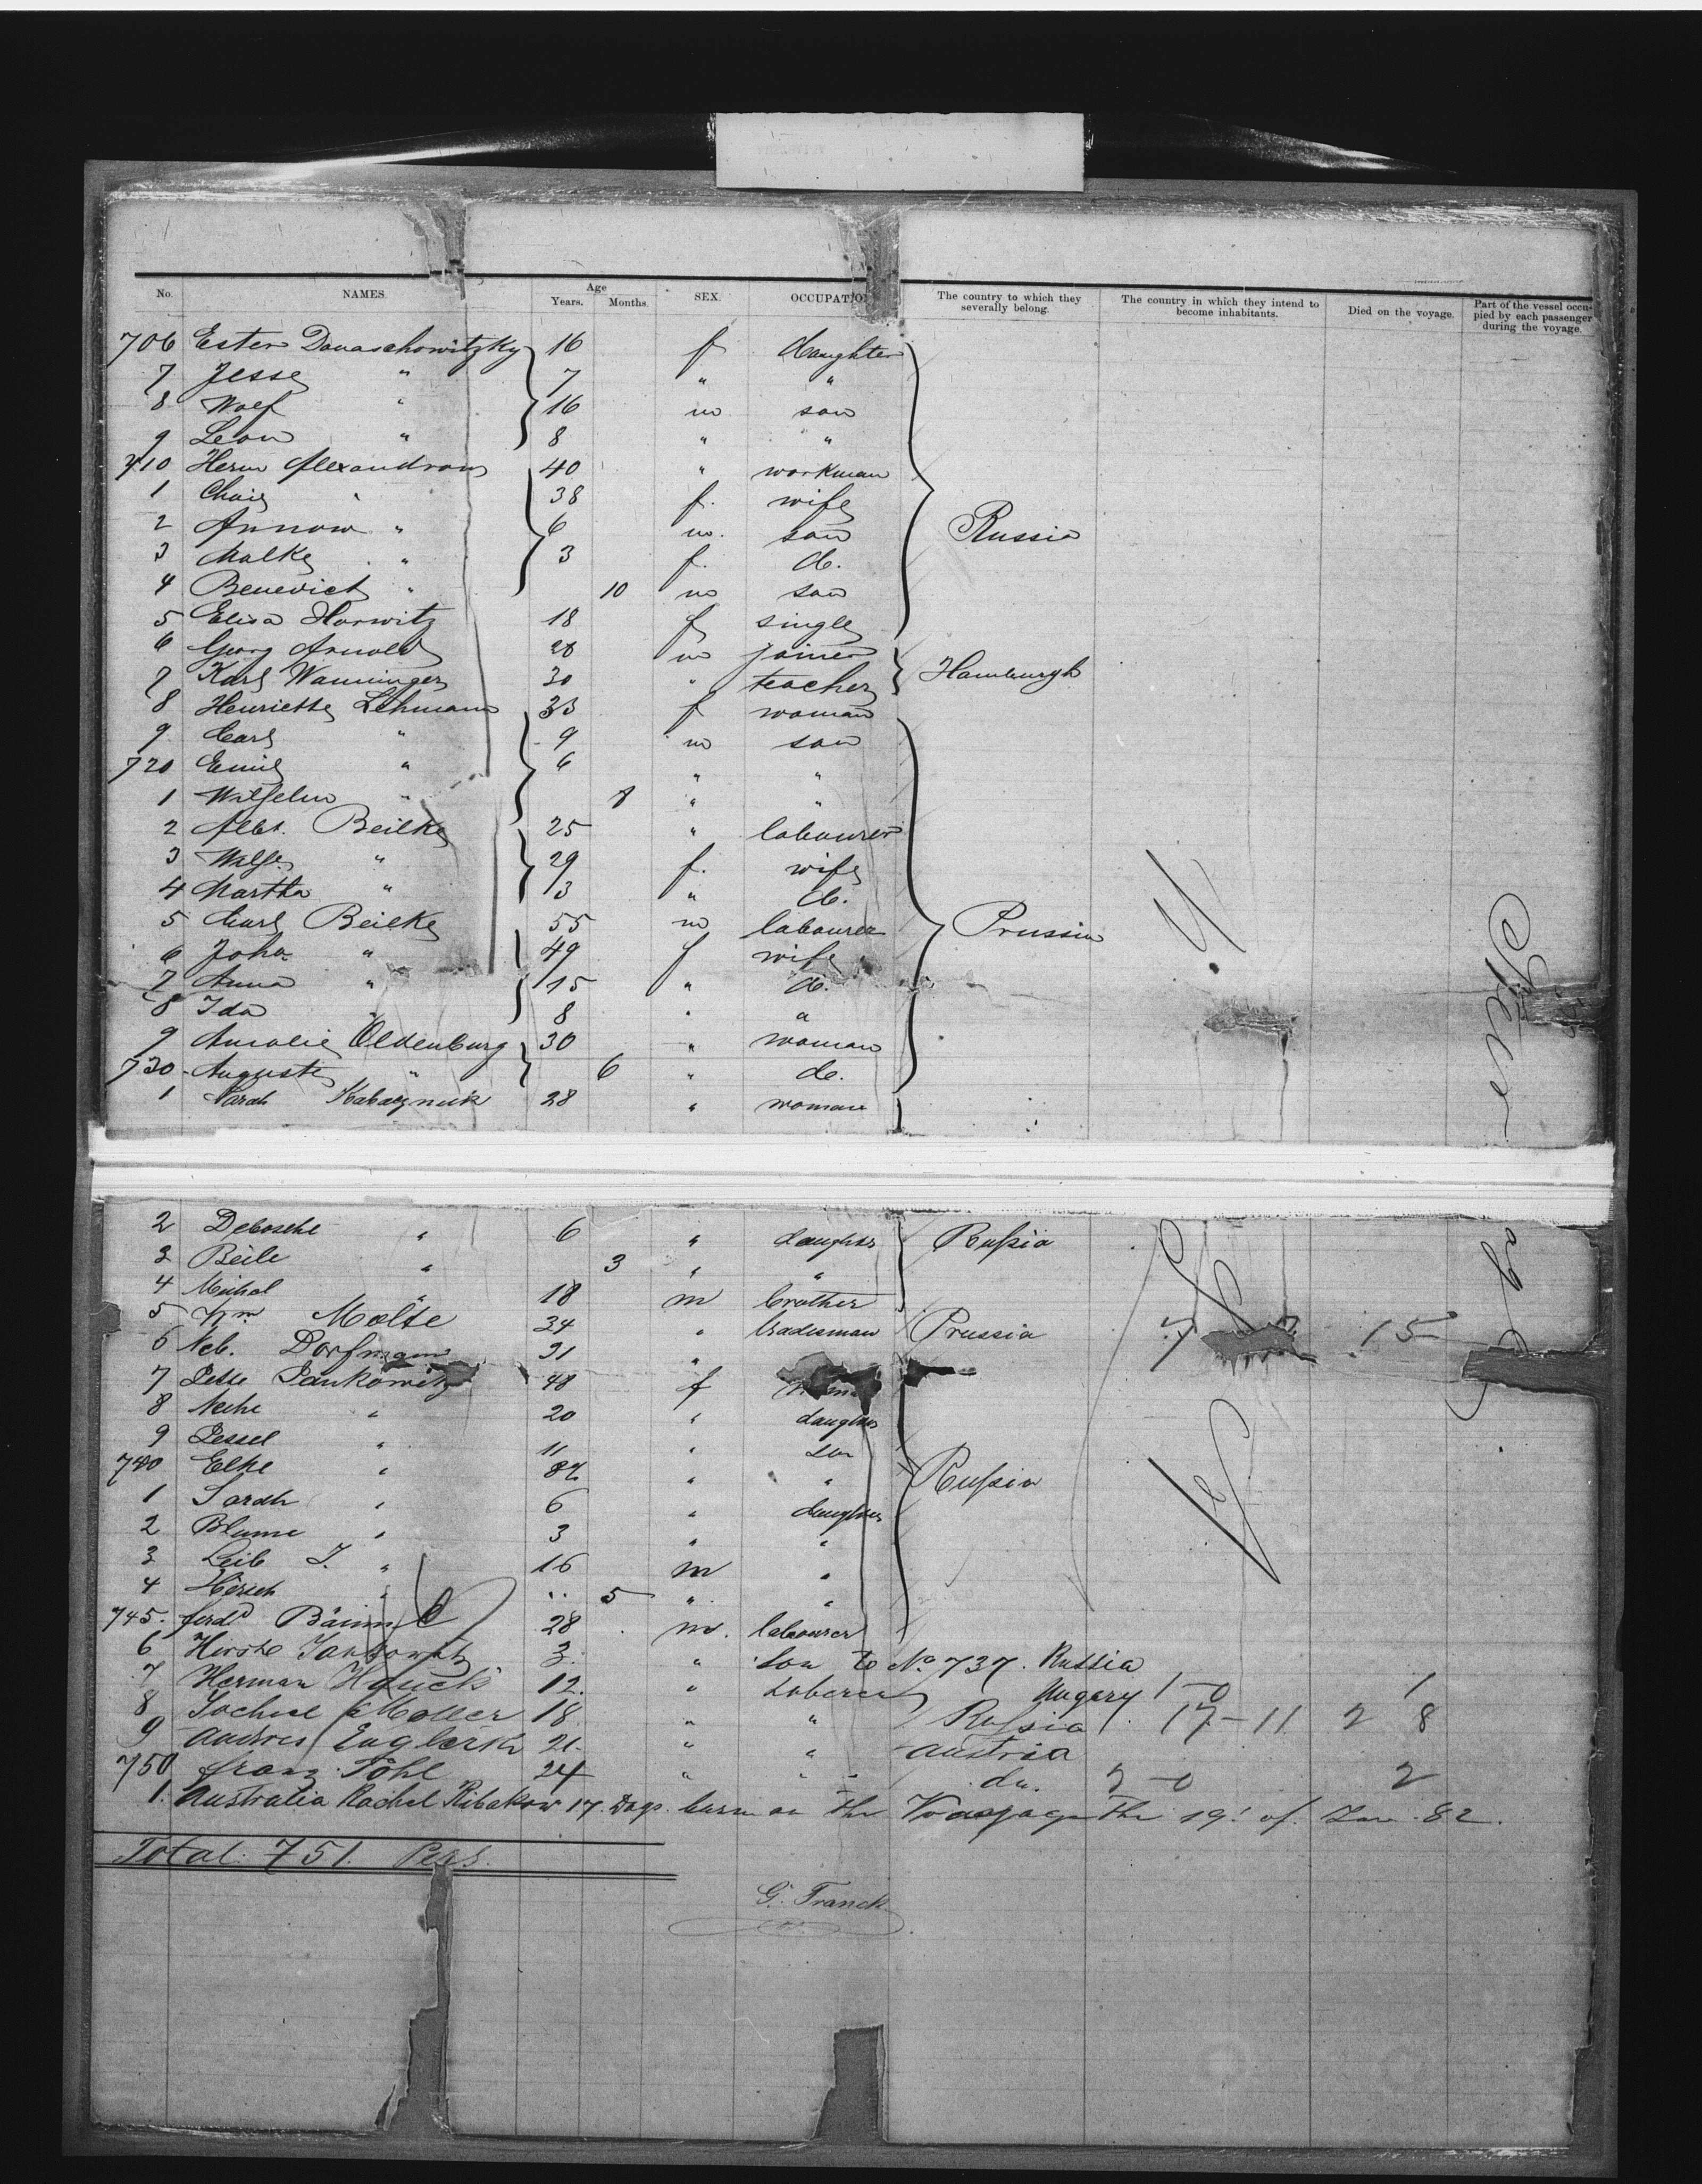 No. NAMES. Age Years. Months. SEX. OCCUPATIO The country to which they severally belong. The country in which they intend to become inhabitants. Died on the voyage. Part of the vessel occupied by each passenger during the voyage.
706 Ester Davaschowitzky 16 f daughter
7 Jesse " 7 " "
8 Wolf " 16 m son
9 Leon " 8 " "
710 Herm Alexandrow 40 " workman
1 Chaie " 38 f. wife
2 Annow " 6 m. son Russia
3 Malke " 3 f. do.
4 Benedict " 10 m son
5 Elisa Horwitz 18 f single
6 Georg Arnold 28 m joiner
7 Karl Wanninger 30 " teacher Hamburgh
8 Henriette Lehmann 33 f woman
9 Carl " 9 m son
720 Emil " 6 " "
1 Wilhelm " 8 " "
2 Albt. Beilke 25 " labourer
3 Wilhe " 29 f. wife
4 Martha " 3 " do.
5 Carl Beilke 55 m labourer Prussia
6 Joha " 49 f wife
7 Anna " 15 " do.
8 Ida " 8 " "
9 Amalie Oldenburg 30 " woman
730 Auguste " 6 " do.
1 Sarah 28 " woman
2 Debosche " 6 " daughter Russia
3 Beile " 3 " "
4 Michel " 18 m brother
5 Hm Molte 34 " tradesman Prussia 15
6 Neb. Dorfmann 31 "
7 Pesse Jankowitz 48 f
8 Neche " 20 " daughter
9 Pessel " 11 " son
740 Elke " 8 " " Russia
1 Sarah " 6 " daughter
2 Blume " 3 " "
3 Leib J. " 16 m "
4 Hersch " .. 5 " "
745. ferdd Bäum 28 m. labourer
6 Hirsch Jankowitz 3. " Son to No 737. Russia
7 Herman Hauck 12. " Laberer Ungary 1-0 1
8 Jochel Moller 18 " " Russia 17-11 2 8
9 Andres Englerth 21. " " Austria
750 franz Pöhl 24 " " do. 2-0 2
1. Australia Rachel Ribakow 17 Days born on the Voayage the 19t of Jan. 82.
Total: 751. Pers.
G. Franck